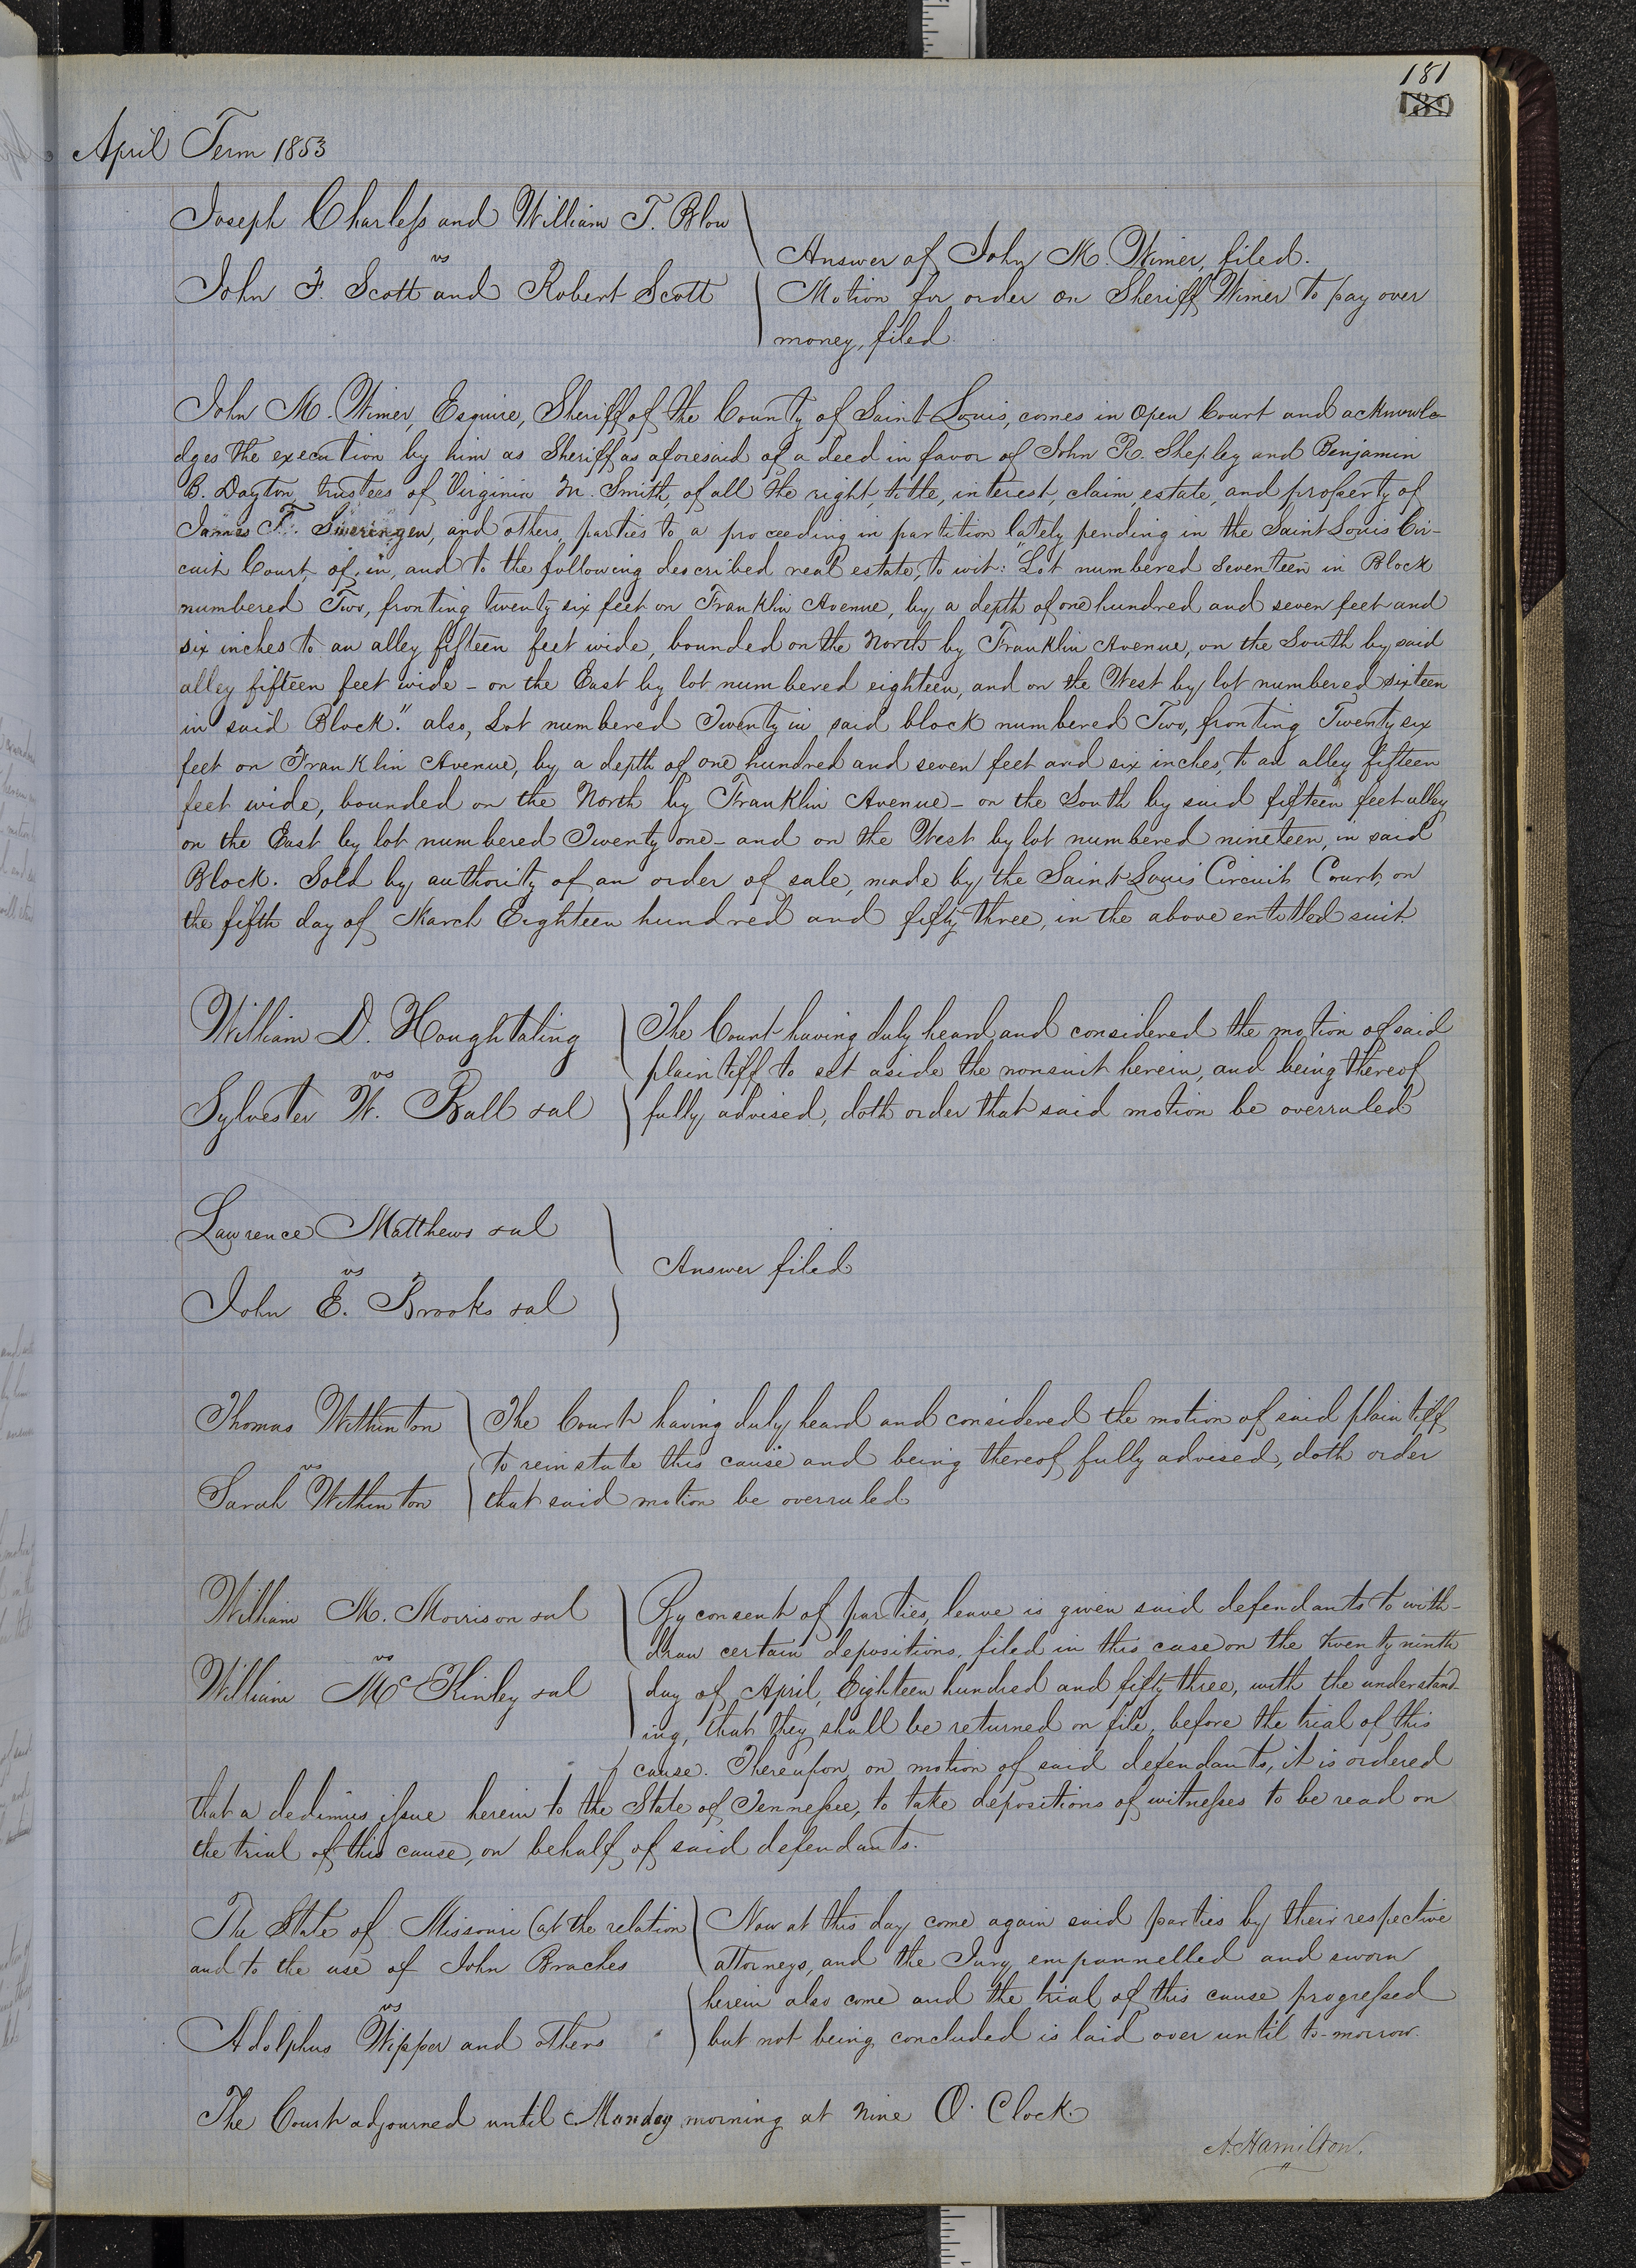 181
189
April Term 1853
Joseph Charless and William T. Blow
vs
John F. Scott and Robert Scott
Answer of John M. Wimer, filed.
Motion for order on Sheriff Wimer to pay over
money, filed.
John M. Wimer, Esquire, Sheriff of the County of Saint Louis, comes in open Court and acknowle-
dges the execution by him as Sheriff as aforesaid of a deed in favor of John R. Shepley and Benjamin
B. Dayton, trustees of Virginia M. Smith, of all the right, title, interest, claim, estate, and property of
James T. Sweringen, and others, parties to a proceeding in partition lately pending in the Saint Louis Cir-
cuit Court, of, in, and to the following described real estate, to wit: "Lot numbered Seventeen in Block
numbered Two, fronting twenty six feet on Franklin Avenue, by a depth of one hundred and seven feet and
six inches to an alley fifteen feet wide, bounded on the North by Franklin Avenue, on the South by said
alley fifteen feet wide - on the East by lot numbered eighteen, and on the West by lot numbered sixteen
in said Block." also, Lot numbered Twenty in said block numbered Two, fronting Twenty six
feet on Franklin Avenue, by a depth of one hundred and seven feet and six inches, to an alley fifteen
feet wide, bounded on the North by Franklin Avenue - on the South by said fifteen feet alley
on the East by lot numbered Twenty one - and on the West by lot numbered nineteen, in said
Block. Sold by authority of an order of sale, made by the Saint Louis Circuit Court, on
the fifth day of March Eighteen hundred and fifty three, in the above entitled suit.
William D. Houghtaling
vs
Sylvester W. Ball &al
The Court having duly heard and considered the motion of said
plaintiff to set aside the nonsuit herein, and being thereof
fully advised, doth order that said motion be overruled
Lawrence Matthews &al
vs
John E. Brooks &al
Answer filed
Thomas Withinton
vs
Sarah Withinton
The Court having duly heard and considered the motion of said plaintiff
to reinstate this cause and being thereof fully advised, doth order
that said motion be overruled
William M. Morrison &al
vs
William McKinley &al
By consent of parties, leave is given said defendants to with-
draw certain depositions, filed in this case on the twenty ninth
day of April, Eighteen hundred and fifty three, with the understand-
ing, that they shall be returned on file, before the trial of this
cause. Thereupon on motion of said defendants, it is ordered
that a dedimus issue herein to the State of Tennessee, to take depositions of witnesses to be read on
the trial of this cause, on behalf of said defendants.
The State of Missouri (at the relation
and to the use of John Braches
vs
Adolphus Wippor and others
Now at this day come again said parties by their respective
attorneys, and the Jury empannelled and sworn
herein also come and the trial of this cause progressed
but not being concluded is laid over until to-morrow.
The Court adjourned until Monday morning at nine O'Clock
A. Hamilton.